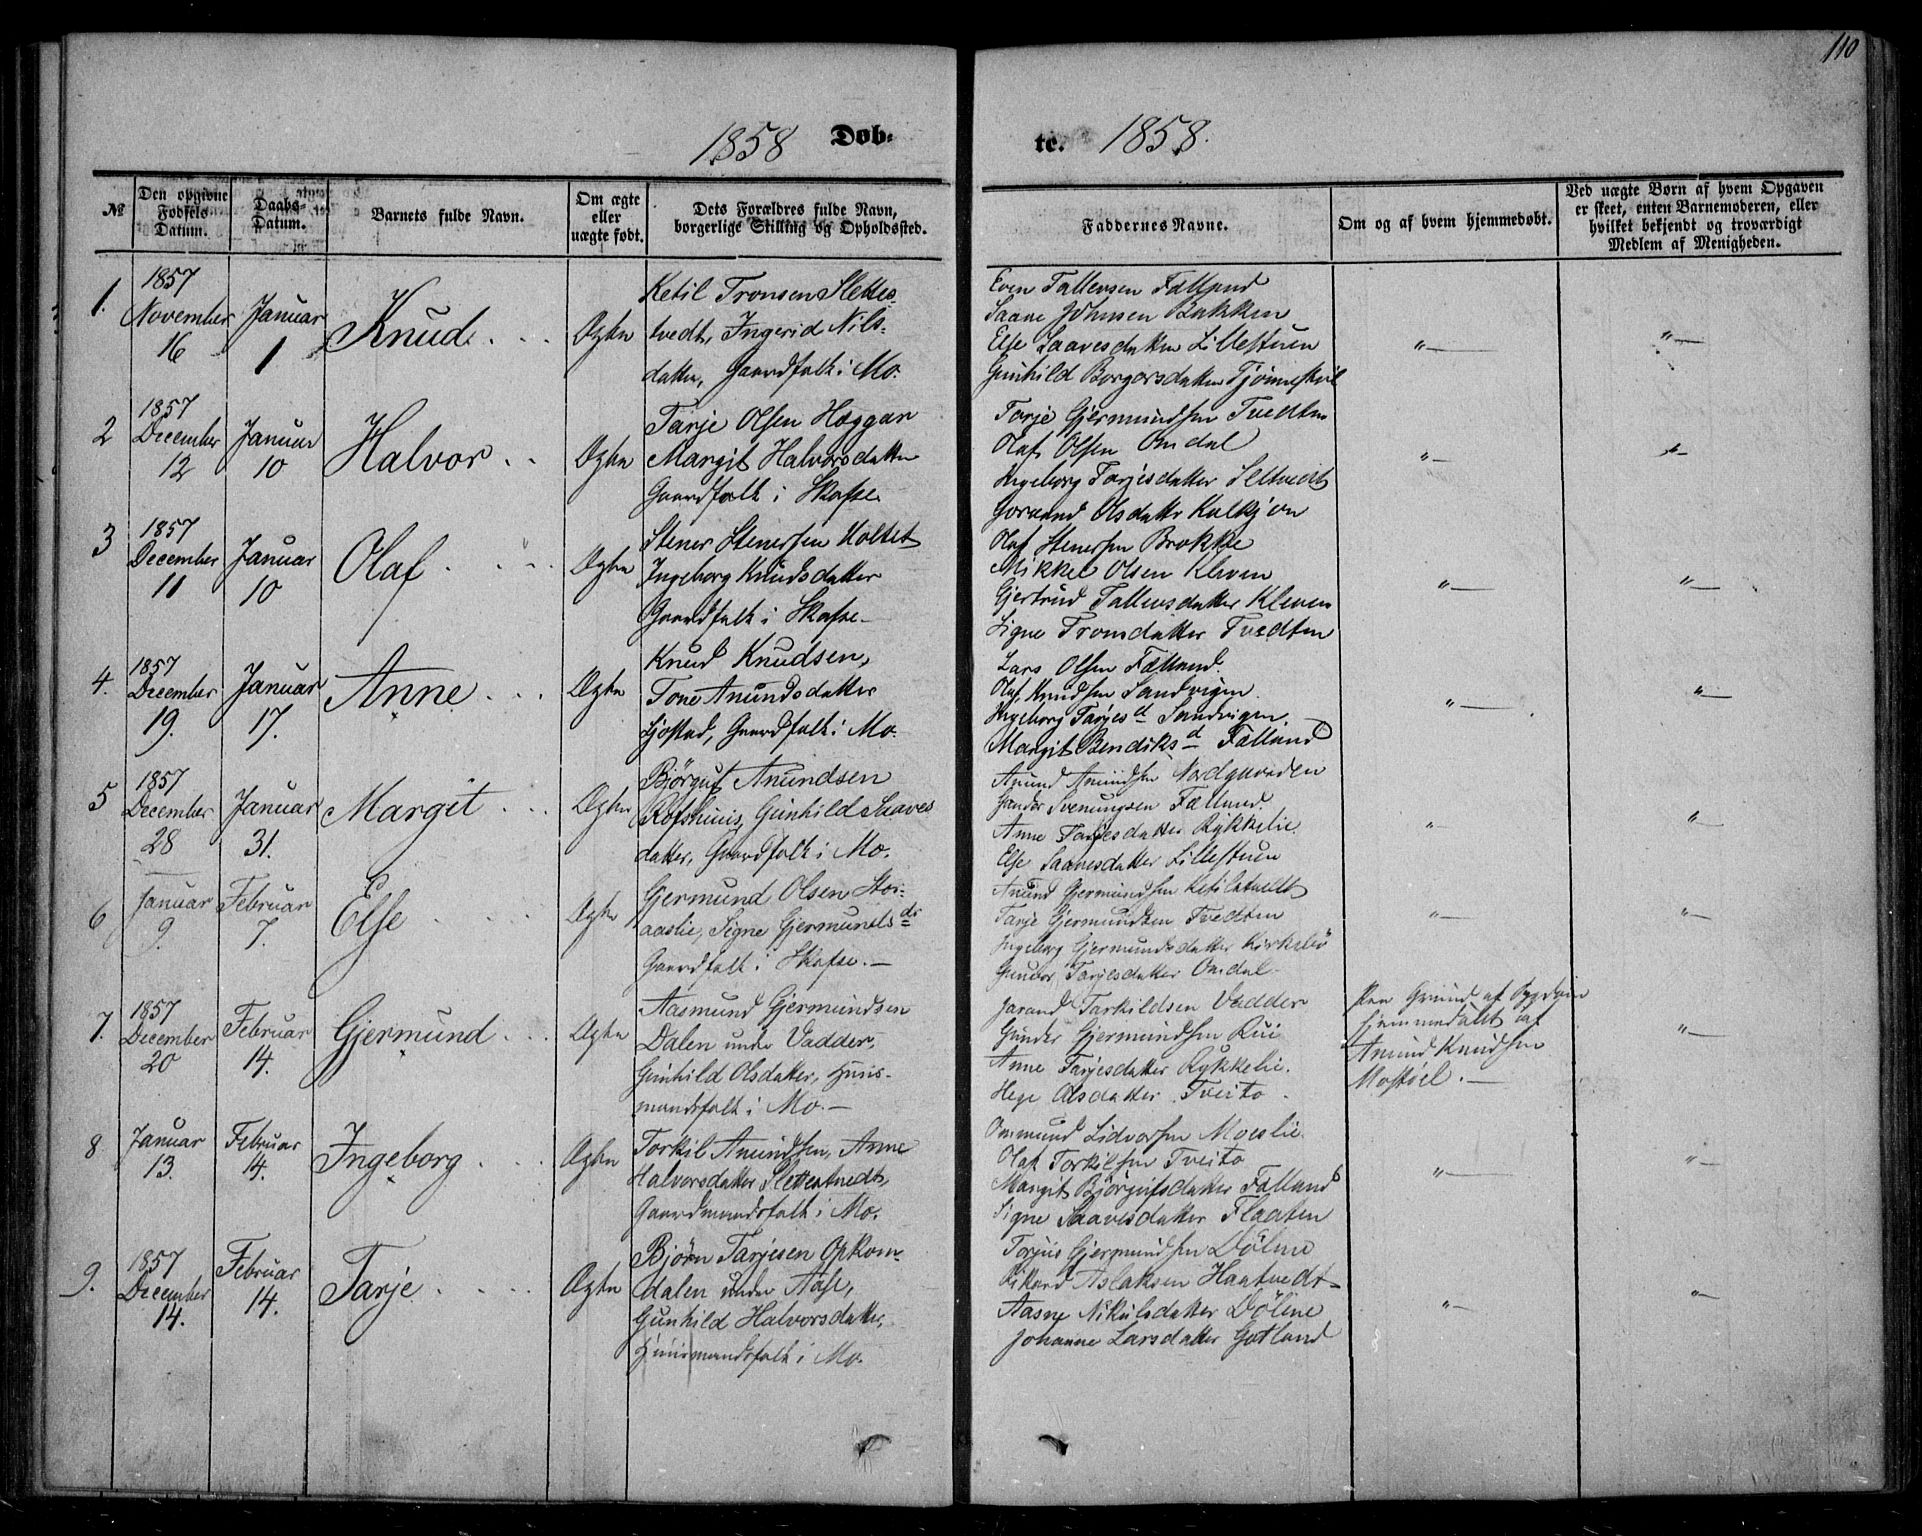 110
1858 Døb-
te. 1858.
№
Den opgivne Fødsels Datum.
Daabs-Datum.
Barnets fulde Navn.
Om ægte eller uægte født.
Dets Forældres fulde Navn, borgerlige Stilling og Opholdssted.
Faddernes Navne.
Om og af hvem hjemmedøbt.
Ved uægte Børn af hvem Opgaven er skeet, enten Barnemoderen, eller hvilket bekjendt og troværdigt Medlem af Menigheden.
1.
1857
November
16
Januar
1
Knud
Ægte
Ketil Tronsen Slettes-
tvedt, Ingerid Nils-
datter, Gaardfolk i Mo.
Even Tallevsen Fælland
Saave Johnsen Bakken
Else Saavesdatter Lillestuen
Gunhild Borgersdatter
"—
"—
2
1857
December
12
Januar
10
Halvor
Ægte
Tarje Olsen Hæggar
Margit Halvorsdatter
Gaardfolk i Skafse
Tarje Gjermundsen Tvedten
Olaf Olsen Omdal
Ingeborg Tarjesdatter
Olsdatter
"—
"—
3
1857
December
11
Januar
10
Olaf
Ægte
Stener Stenersen Holtet
Ingeborg Knudsdatter
Gaardfolk i Skafse
Olaf Stenersen Brokke
Mikkel Olsen Kleven
Gjertrud Tallevsdatter Kleven
Signe Tronsdatter Tvedten
"—
"—
4.
1857
December
19.
Januar
17.
Anne
Ægte
Knud Knudsen,
Tone Anundsdatter
Sjøstad, Gaardfolk i Mo.
Lars Olsen Fælland.
Olaf Knudsen Sandvigen
Ingeborg Tarjesd Sandvigen.
Margit Bendiksd Fælland
"—
"—
5
1857
December
28
Januar
31.
Margit
Ægte
Bjørguf Anundsen
Rofshuus, Gunhild Saaves
datter, Gaardfolk i Mo.
Anund Anundsen Nordgaarden
Gunder Svenungsen Fælland.
Anne Tarjesdatter Rykkelie
Else Saavesdatter Lillestuen
"—
"—
6
Januar
9.
Februar
7.
Else
Ægte
Gjermund Olsen Stor-
aaslie, Signe Gjermundsdr
Gaardfolk i Skafse.—
Anund Gjermundsen
Tarje Gjermundsen Tvedten
Ingeborg Gjermundsdatter Kirkebø
Gunvor Tarjesdatter Omdal.
"—
"—
7.
1857
December
20
Februar
14.
Gjermund
Ægte
Aasmund Gjermundsen
Dalen under Vadder,
Gunhild Olsdatter, Huus-
mandsfolk i Mo.—
Jarand Tarkildsen Vadder
Gunder Gjermundsen Rui
Anne Tarjesdatter Rykkelie.
Hege Olsdatter Tveito.
Paa Grund af Sygdom
hjemmedøbt af
Anund Knudsen
Mostøel.—
"—
8
Januar
13.
Februar
14.
Ingeborg
Ægte
Torkil Anundsen, Anne
Halvorsdatter Slettestvedt,
Gaardmandsfolk i Mo.
Ommund Lidvorsen Moeslie.
Olaf Torkilsen Tveito
Margit Bjørgufsdatter Fælland
Signe Saavesdatter Flaaten
"—
"—
9.
1857
December
14.
Februar
14.
Tarje
Ægte
Bjørn Tarjesen Opkom-
dalen under Aase,
Gunhild Halvorsdatter,
Huusmandsfolk i Mo.
Torjus Gjermundsen Dölme
Rikard Aslaksen Haatvedt
Aasne Nikulsdatter Dölme
Johanne Larsdatter Gøtland
"—
"—